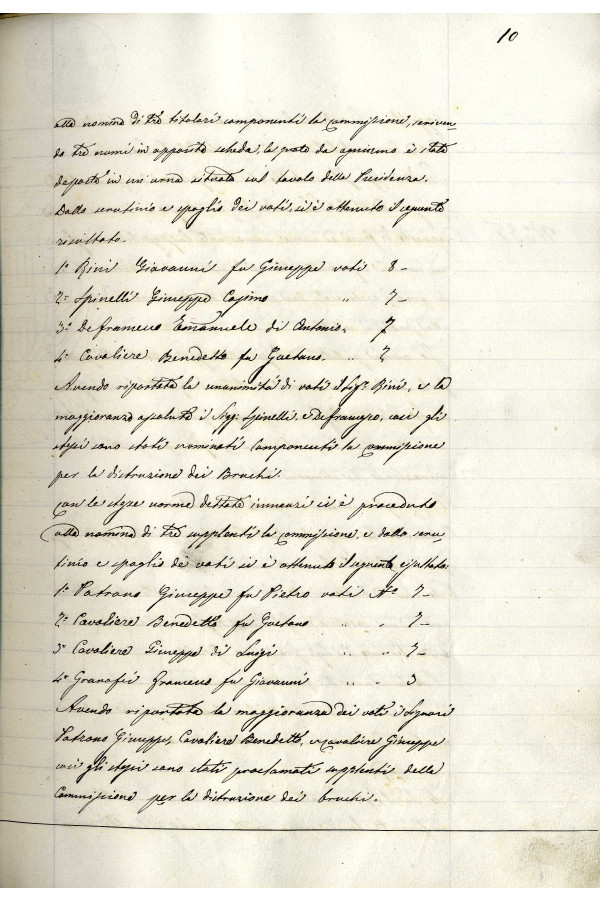 10
alla nomina di tre titolari componenti la commissione, scriven-
do tre nomi in apposita scheda, la quale da ognuno è stata
deposta in un'urna situata sul tavolo della Presidenza.
Dallo scrutinio e spoglio dei voti, si è ottenuto il seguente
risultato.
1° Rini Giovanni fu Giuseppe voti 8 -
2° Spinelli Giuseppe Cosimo " 7 -
3° Defrancesco Emanuele di Antonio " 7
4° Cavaliere Benedetto fu Gaetano " " 2
Avendo riportata la unanimità di voti il Sigr. Rini, e la
maggioranza assoluta i Sigg. Spinelli, e Defrancesco, così gli
stessi sono stati nominati componenti la commissione
per la distruzione dei Bruchi.
Con le stesse norme dettate innanzi si è proceduto
alla nomina di tre supplenti la commissione, e dallo scru-
tinio e spoglio dei voti si è ottenuto il seguente risultato
1° Patrano Giuseppe fu Pietro voti N° 7 -
2° Cavaliere Benedetto fu Gaetano " " 7 -
3° Cavaliere Giuseppe di Luigi " " 7 -
4° Granafei Francesco fu Giovanni " " 3
Avendo riportata la maggioranza dei voti i Signori
Patrano Giuseppe, Cavaliere Benedetto, e Cavaliere Giuseppe
così gli stessi sono stati proclamati supplenti della
Commissione per la distruzione dei bruchi.